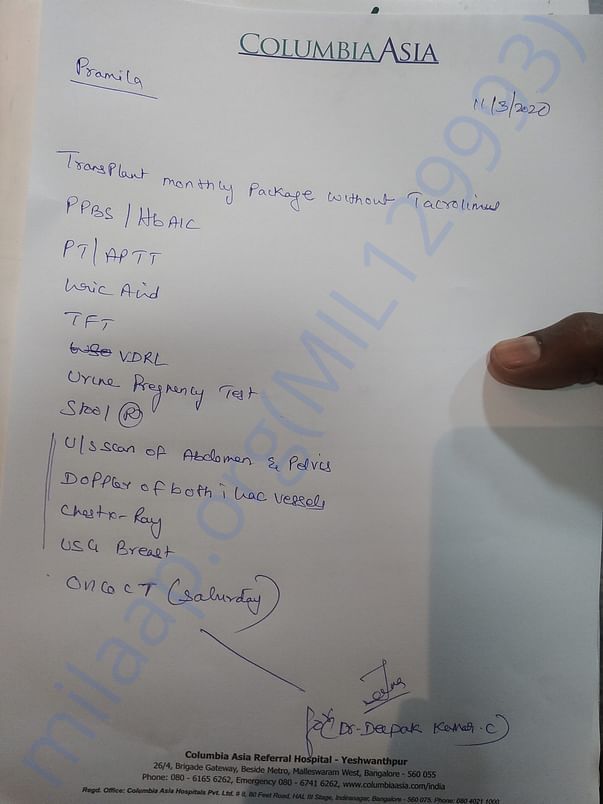 COLUMBIA ASIA
Pramila
11/3/2020
Transplant monthly Package without Tacrolimus
PPBS / HbA1C
PT / APTT
Uric Acid
TFT
VDRL
Urine Pregnancy Test
Stool R
U/S scan of Abdomen & Pelvis
Doppler of both iliac vessels
Chest x-Ray
USG Breast
Onco CT (Saturday)
for (Dr. Deepak Kumar.C)
Columbia Asia Referral Hospital - Yeshwanthpur
26/4, Brigade Gateway, Beside Metro, Malleswaram West, Bangalore - 560 055
Phone: 080 - 6165 6262, Emergency 080 - 6741 6262, www.columbiaasia.com/india
Regd. Office: Columbia Asia Hospitals Pvt. Ltd. # 8, 80 Feet Road, HAL III Stage, Indiranagar, Bangalore - 560 075. Phone: 080 4021 1000
milaap.org(MIL129993)